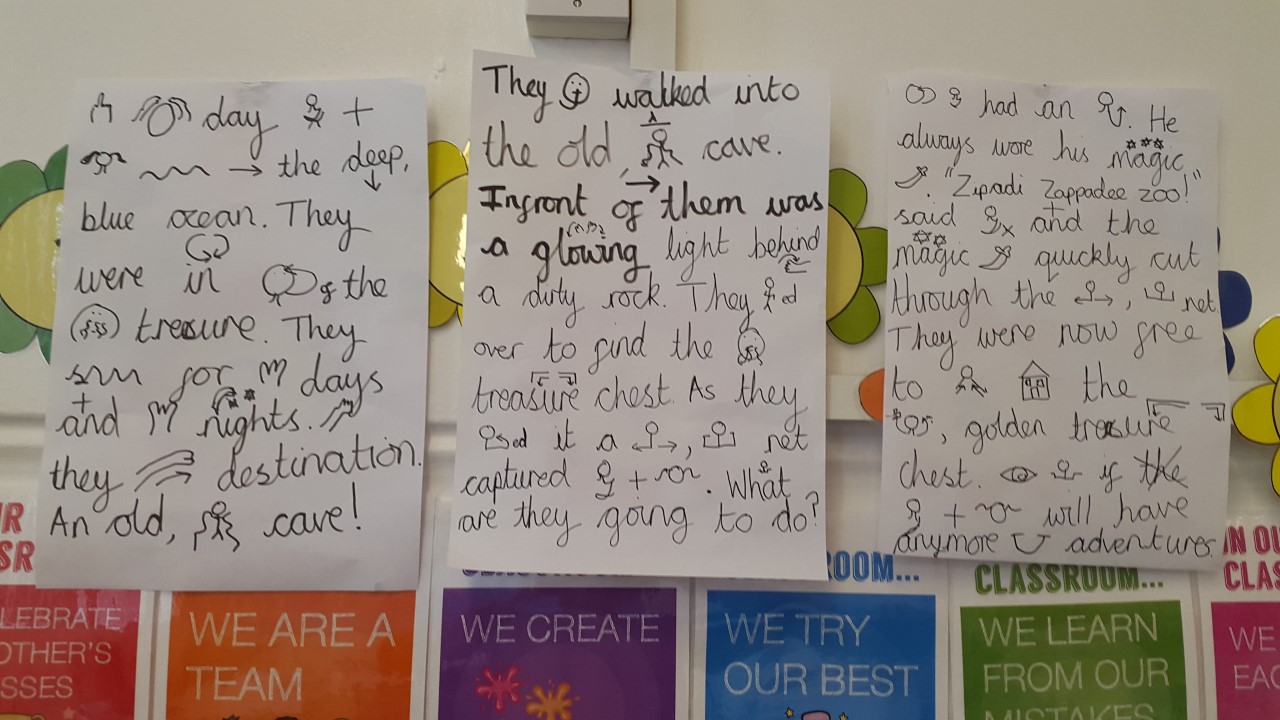 day +
the deep,
blue ocean. They
were in the
treasure. They
for days
and nights.
they destination.
An old, cave!
They walked into
the old, cave.
Infront of them was
a glowing light behind
a dirty rock. They ed
over to find the
treasure chest. As they
ed it a , net
captured + . What
are they going to do?
had an . He
always wore his magic
. "Zipadi Zappadee zoo!"
said and the
magic quickly cut
through the , net.
They were now free
to the
, golden treasure
chest. if the
+ will have
anymore adventures.
UR
SR
CLASSROOM...
ROOM...
CLASSROOM...
IN OU
CLAS
LEBRATE
OTHER'S
SSES
WE ARE A
TEAM
WE CREATE
WE TRY
OUR BEST
WE LEARN
FROM OUR
MISTAKES
WE
EAC